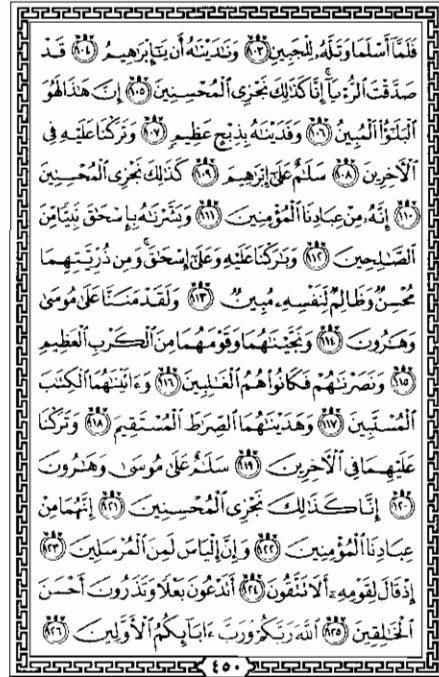 فَلَمَّآ أَسْلَمَا وَتَلَّهُۥ لِلْجَبِينِ ﴿١٠٣﴾ وَنَٰدَيْنَٰهُ أَن يَٰٓإِبْرَٰهِيمُ ﴿١٠٤﴾ قَدْ
صَدَّقْتَ ٱلرُّءْيَآ ۚ إِنَّا كَذَٰلِكَ نَجْزِى ٱلْمُحْسِنِينَ ﴿١٠٥﴾ إِنَّ هَٰذَا لَهُوَ
ٱلْبَلَٰٓؤُا۟ ٱلْمُبِينُ ﴿١٠٦﴾ وَفَدَيْنَٰهُ بِذِبْحٍ عَظِيمٍ ﴿١٠٧﴾ وَتَرَكْنَا عَلَيْهِ فِى
ٱلْءَاخِرِينَ ﴿١٠٨﴾ سَلَٰمٌ عَلَىٰٓ إِبْرَٰهِيمَ ﴿١٠٩﴾ كَذَٰلِكَ نَجْزِى ٱلْمُحْسِنِينَ
﴿١١٠﴾ إِنَّهُۥ مِنْ عِبَادِنَا ٱلْمُؤْمِنِينَ ﴿١١١﴾ وَبَشَّرْنَٰهُ بِإِسْحَٰقَ نَبِيًّا مِّنَ
ٱلصَّٰلِحِينَ ﴿١١٢﴾ وَبَٰرَكْنَا عَلَيْهِ وَعَلَىٰٓ إِسْحَٰقَ ۚ وَمِن ذُرِّيَّتِهِمَا
مُحْسِنٌ وَظَالِمٌ لِّنَفْسِهِۦ مُبِينٌ ﴿١١٣﴾ وَلَقَدْ مَنَنَّا عَلَىٰ مُوسَىٰ
وَهَٰرُونَ ﴿١١٤﴾ وَنَجَّيْنَٰهُمَا وَقَوْمَهُمَا مِنَ ٱلْكَرْبِ ٱلْعَظِيمِ
﴿١١٥﴾ وَنَصَرْنَٰهُمْ فَكَانُوا۟ هُمُ ٱلْغَٰلِبِينَ ﴿١١٦﴾ وَءَاتَيْنَٰهُمَا ٱلْكِتَٰبَ
ٱلْمُسْتَبِينَ ﴿١١٧﴾ وَهَدَيْنَٰهُمَا ٱلصِّرَٰطَ ٱلْمُسْتَقِيمَ ﴿١١٨﴾ وَتَرَكْنَا
عَلَيْهِمَا فِى ٱلْءَاخِرِينَ ﴿١١٩﴾ سَلَٰمٌ عَلَىٰ مُوسَىٰ وَهَٰرُونَ
﴿١٢٠﴾ إِنَّا كَذَٰلِكَ نَجْزِى ٱلْمُحْسِنِينَ ﴿١٢١﴾ إِنَّهُمَا مِنْ
عِبَادِنَا ٱلْمُؤْمِنِينَ ﴿١٢٢﴾ وَإِنَّ إِلْيَاسَ لَمِنَ ٱلْمُرْسَلِينَ ﴿١٢٣﴾
إِذْ قَالَ لِقَوْمِهِۦٓ أَلَا تَتَّقُونَ ﴿١٢٤﴾ أَتَدْعُونَ بَعْلًا وَتَذَرُونَ أَحْسَنَ
ٱلْخَٰلِقِينَ ﴿١٢٥﴾ ٱللَّهَ رَبَّكُمْ وَرَبَّ ءَابَآئِكُمُ ٱلْأَوَّلِينَ ﴿١٢٦﴾
٤٥٠